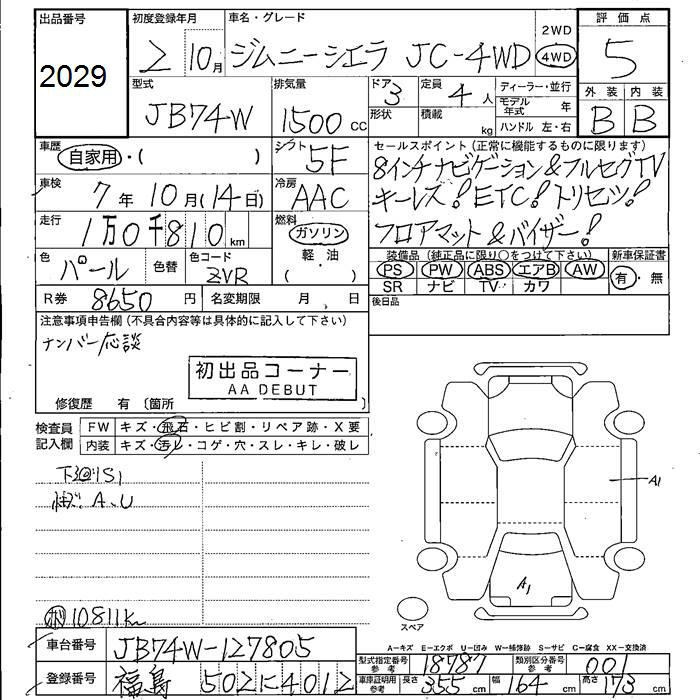 出品番号
2029
初度登録年月
2 10月
車名・グレード
ジムニーシエラ JC-4WD
2WD
4WD
評価点
5
型式
JB74W
排気量
1500cc
ドア 3
形状
定員 4人
積載 kg
ディーラー・並行
モデル年式 年
ハンドル 左・右
外装 内装
B B
車歴 自家用・( )
シフト 5F
車検 7年 10月(14日)
冷房 AAC
走行 1万0千810km
燃料 ガソリン
( 軽・油 )
色 パール 色替
色コード ZVR
R券 8650円 名変期限 月 日
セールスポイント(正常に機能するものに限ります)
8インチナビゲーション&フルセグTV
キーレス!ETC!トリセツ!
フロアマット&バイザー!
装備品(純正品に限り○をつけて下さい) 新車保証書
PS PW ABS エアB AW 有・無
SR ナビ TV カワ
後日品
注意事項申告欄(不具合内容等は具体的に記入して下さい)
ナンバー応談
初出品コーナー
AA DEBUT
修復歴 有〔箇所 〕
検査員記入欄
FW キズ・飛石・ヒビ割・リペア跡・X要
内装 キズ・汚レ・コゲ・穴・スレ・キレ・破レ
A、U
10811Km
A1
A1
スペア
A−キズ E−エクボ U−凹み W−補修跡 S−サビ C−腐食 XX−交換済
車台番号 JB74W-127805
登録番号 福島 502に4012
型式指定番号 参考 18787 類別区分番号 参考 001
車庫証明用 参考 長さ 355cm 幅 164cm 高さ 173cm